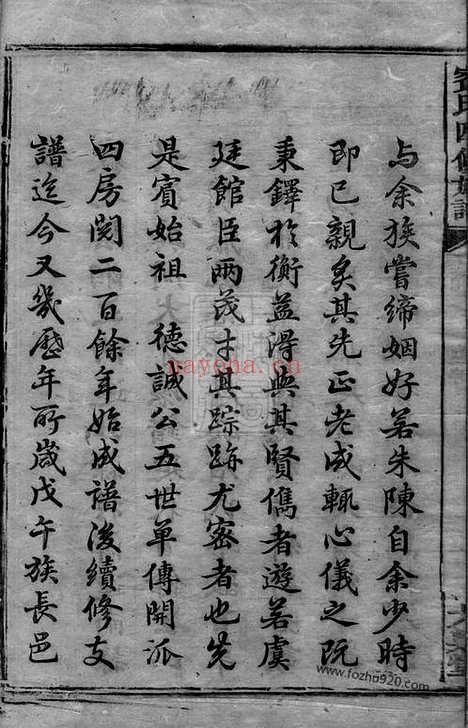 与余族嘗締姻好若朱陳自余少時
即已親炙其先正老成輒心儀之既
秉鐸於衡益得與其賢儁者遊若虞
廷館臣兩茂才其踪跡尤密者也先
是賓始祖 德誠公五世單傳開派
四房閱二百餘年始成譜後續修支
譜迄今又幾歷年所歲戊午族長邑
nayona.cn
www.fozhu920.com